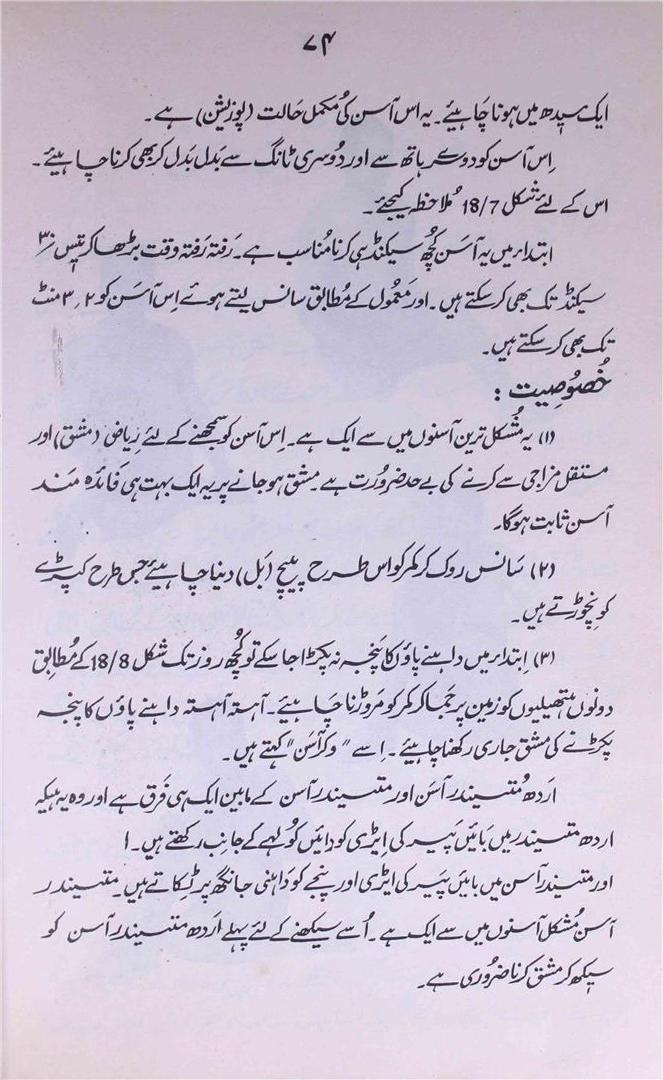 ۷۴
ایک سیدھ میں ہونا چاہیئے۔ یہ اس آسن کی مکمل حالت (پوزیشن) ہے۔
اِس آسن کو دوسرے ہاتھ سے اور دُوسری ٹانگ سے بَدل بَدل کر بھی کرنا چاہیئے۔
اس کے لئے شکل 18/7 مُلاحظہ کیجئے۔
ابتدار میں یہ آسَن کُچھ سیکنڈ ہی کرنا مُناسب ہے۔ رَفتہ رَفتہ وقت بڑھا کر تیس ۳۰
سیکنڈ تک بھی کر سکتے ہیں۔ اور مَعمُول کے مُطابق سانس لیتے ہوئے اِس آسَن کو ۲، ۳ منٹ
تک بھی کر سکتے ہیں۔
خُصُوصِیت :
(۱) یہ مُشکل ترین آسنوں میں سے ایک ہے۔ اِس آسن کو سمجھنے کے لئے رِیاض (مشق) اور
مستقل مزاجی سے کرنے کی بے حد ضرورت ہے۔ مشق ہو جانے پر یہ ایک بہت ہی فَائدہ مَند
آسن ثابت ہوگا۔
(۲) سَانس روک کر کمر کو اس طرح پیچ (بَل) دینا چاہیئے جس طرح کپڑے
کو نِچوڑتے ہیں۔
(۳) اِبتدار میں داہنے پاؤں کا پَنجہ نہ پکڑا جا سکے تو کُچھ روز تک شکل 18/8 کے مُطابق
دونوں ہتھیلیوں کو زمین پر جَما کر کمر کو مَروڑنا چَاہیئے۔ آہستہ آہستہ داہنے پاؤں کا پنجہ
پکڑنے کی مشق جاری رکھنا چاہیئے۔ اِسے "وکر آسَن" کہتے ہیں۔
اَردھ مُتسیندر آسَن اور متسیندر آسن کے مابین ایک ہی فَرق ہے اور وہ یہ ہیکہ
اردھ متسیندر میں بَائیں پَیر کی اِیڑی کو دائیں کُولہے کے جانِب رکھتے ہیں۔ ا
اور متسیندر آسن میں بائیں پَیر کی ایڑی اور پنجے کو داہنی جانگھ پر ٹِکاتے ہیں۔ متسیندر
آسن مُشکل آسنوں میں سے ایک ہے۔ اُسے سیکھنے کے لئے پہلے اَردھ متسیندر آسن کو
سیکھ کر مشق کرنا ضرُوری ہے۔